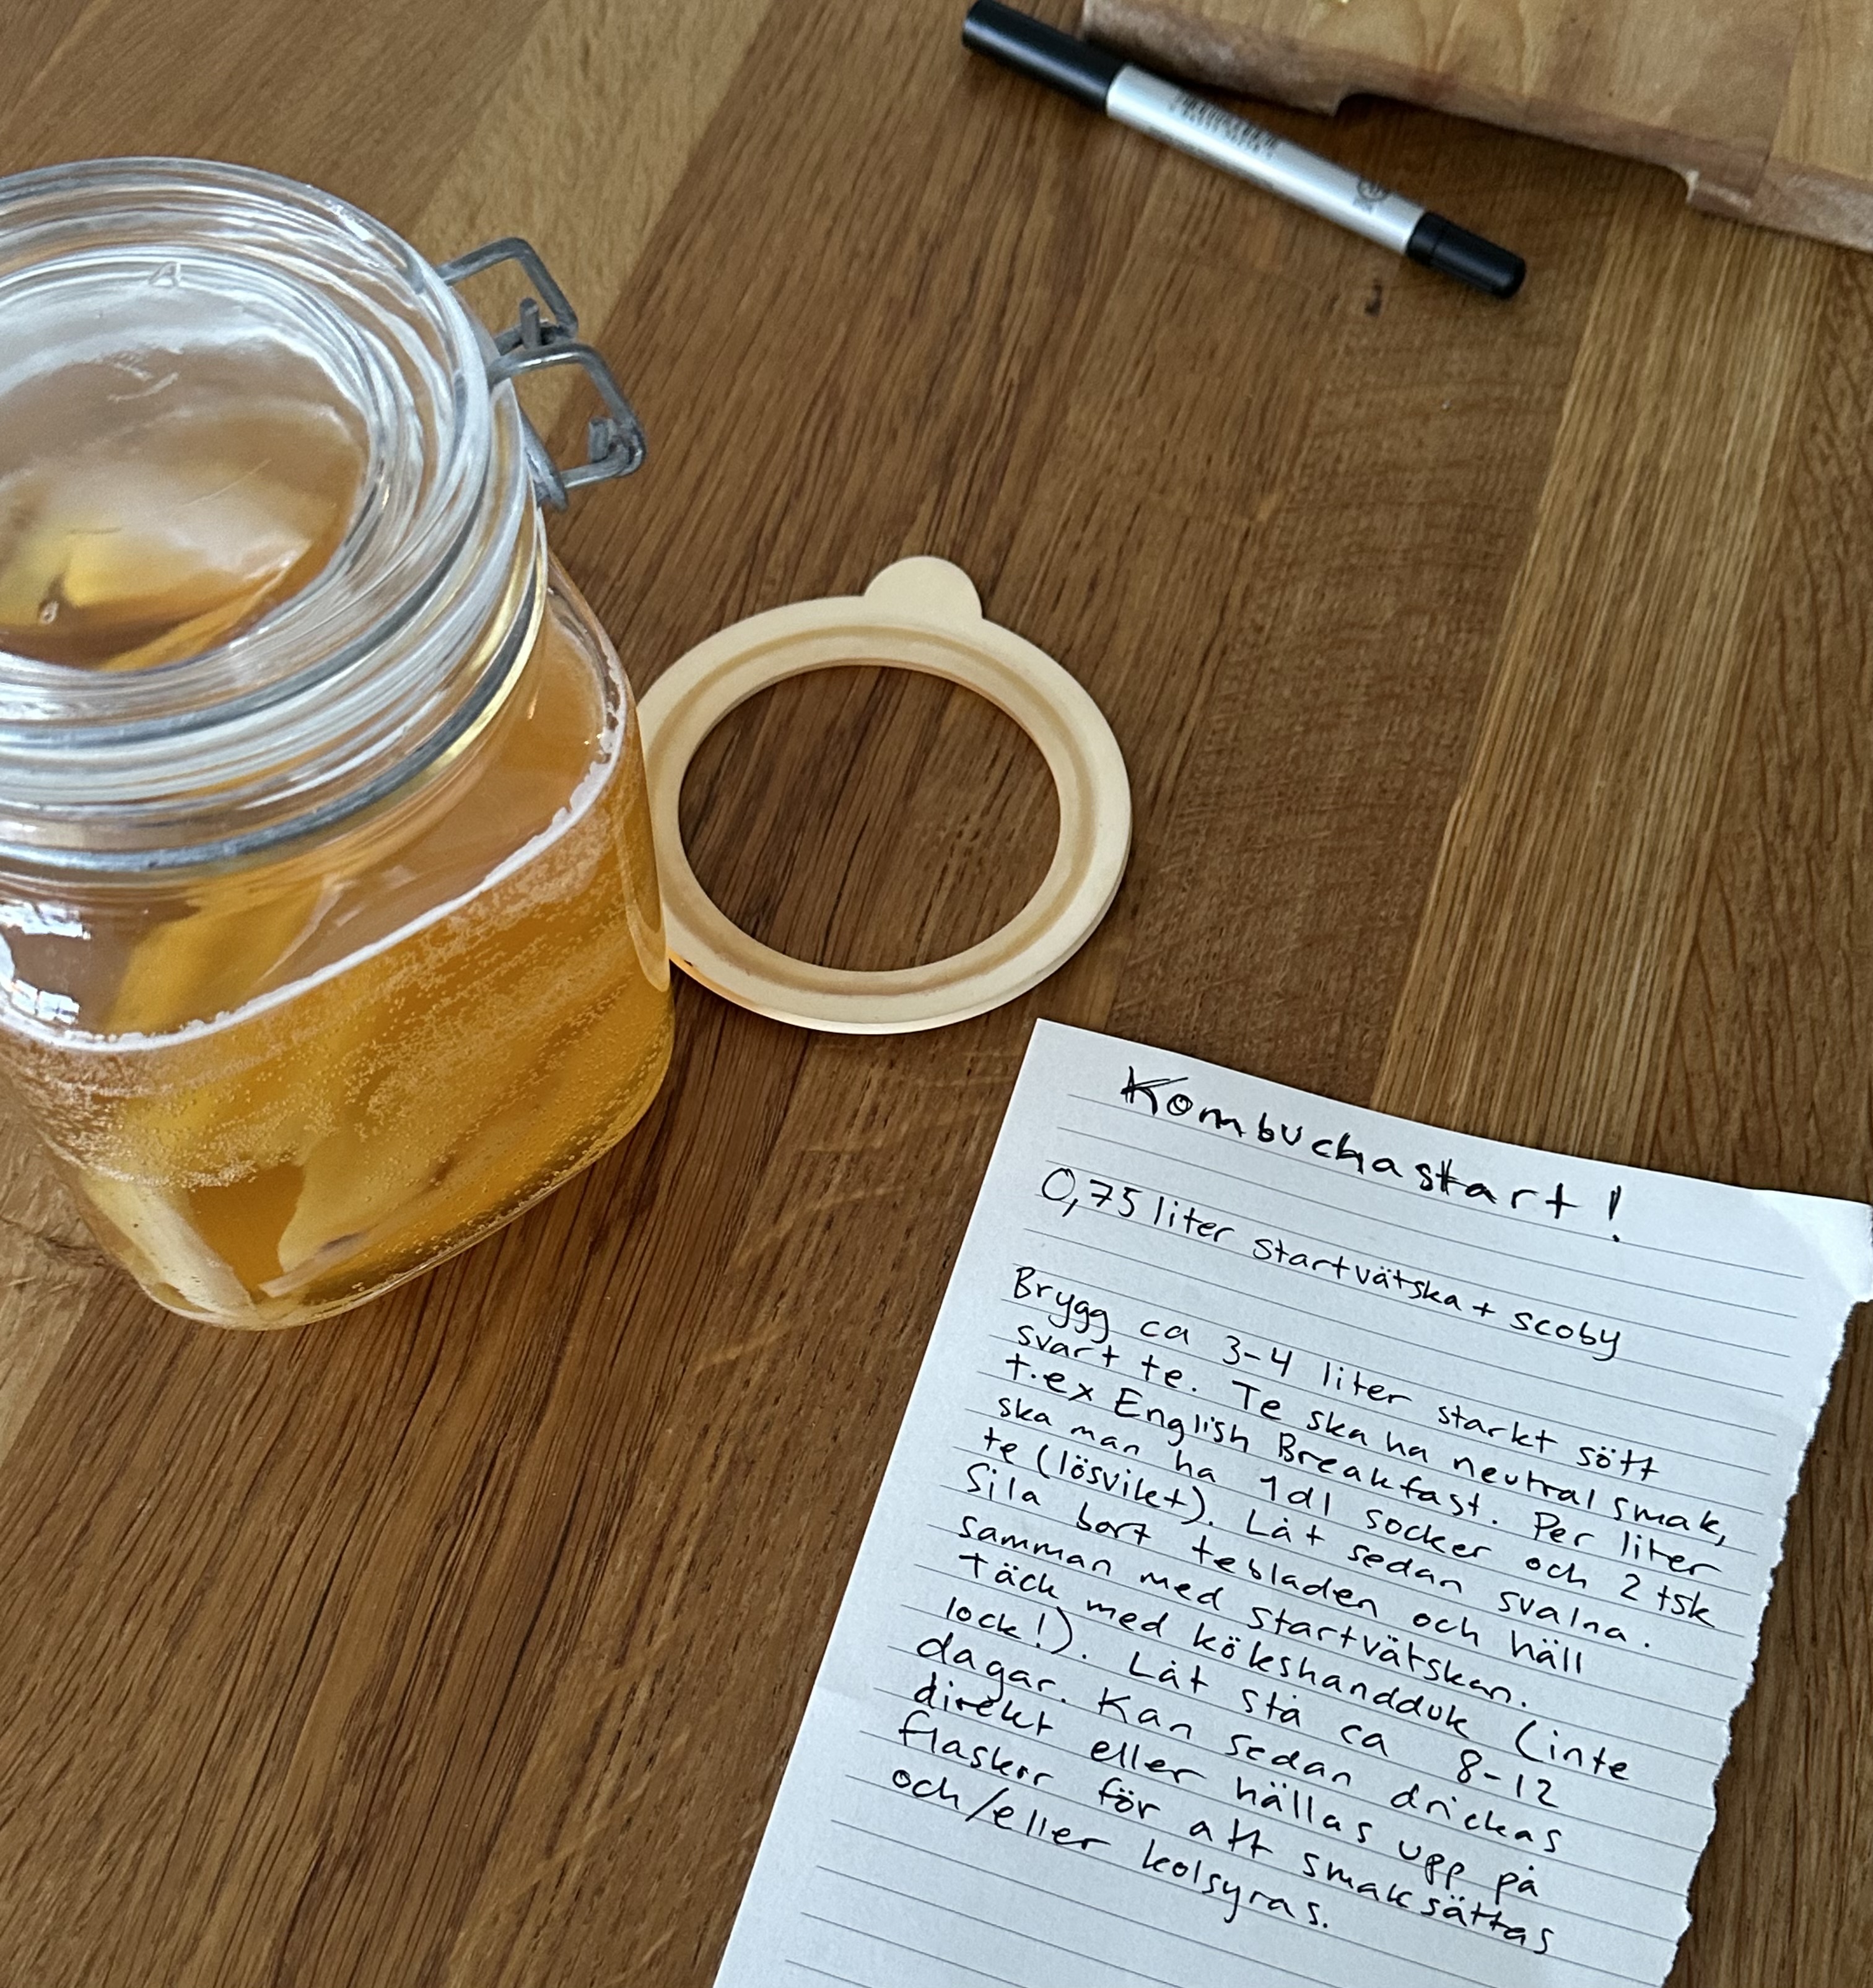 Kombuchastart!
0,75 liter startvätska + scoby
Brygg ca 3-4 liter starkt sött
svart te. Te ska ha neutral smak,
t.ex English Breakfast. Per liter
ska man ha 1dl socker och 2 tsk
te (lösvikt). Låt sedan svalna.
Sila bort tebladen och häll
samman med startvätskan.
Täck med kökshandduk (inte
lock!). Låt stå ca 8-12
dagar. Kan sedan drickas
direkt eller hällas upp på
flaskor för att smaksättas
och/eller kolsyras.